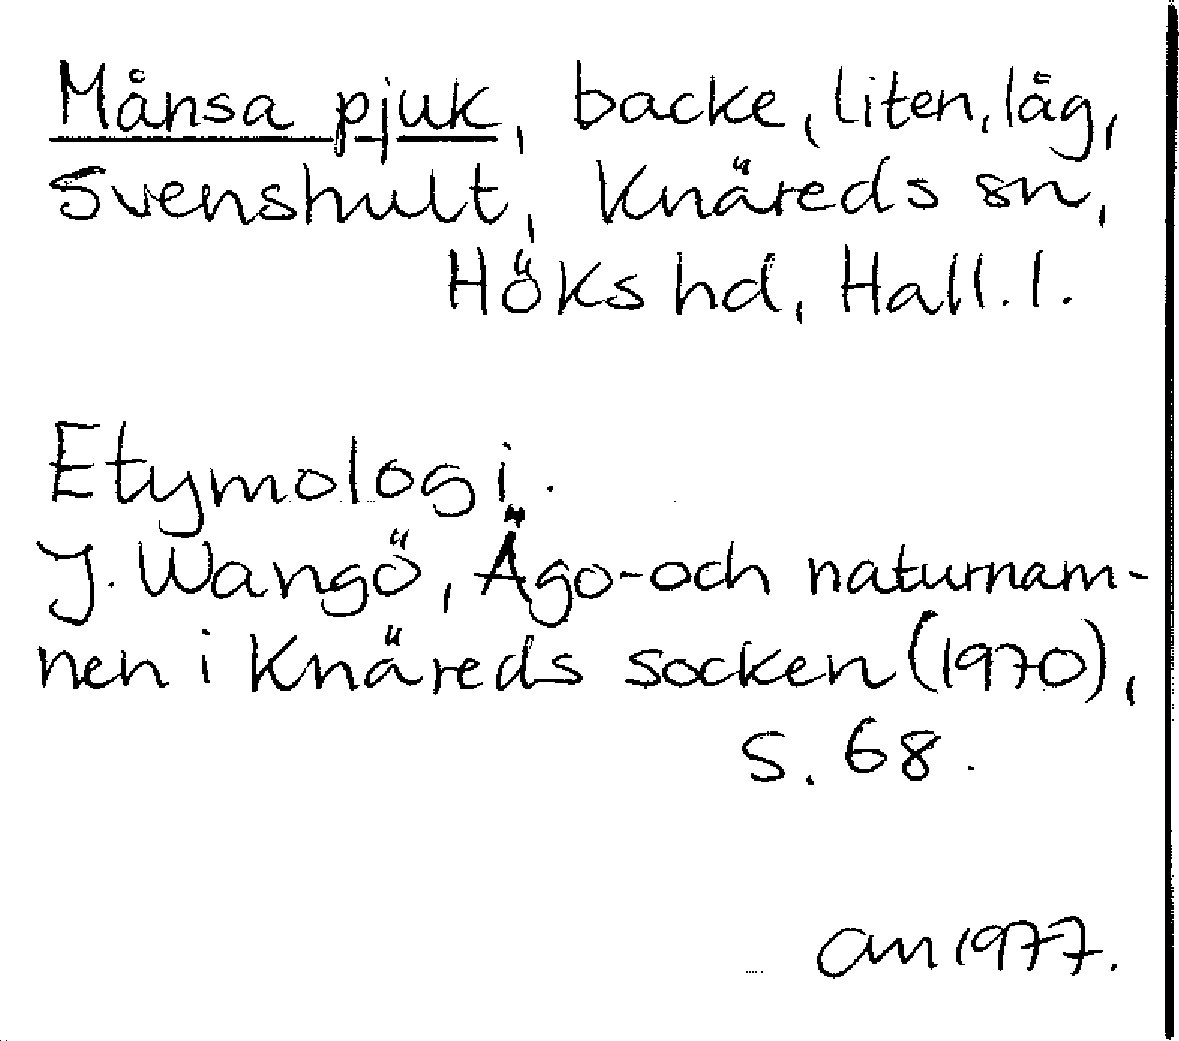 Månsa pjuk, backe, liten, låg,
Svenshult, Knäreds sn,
Höks hd, Hall. l.
Etymologi.
J. Wangö, Ägo- och naturnam-
nen i Knäreds socken (1970),
s. 68.
am 1977.